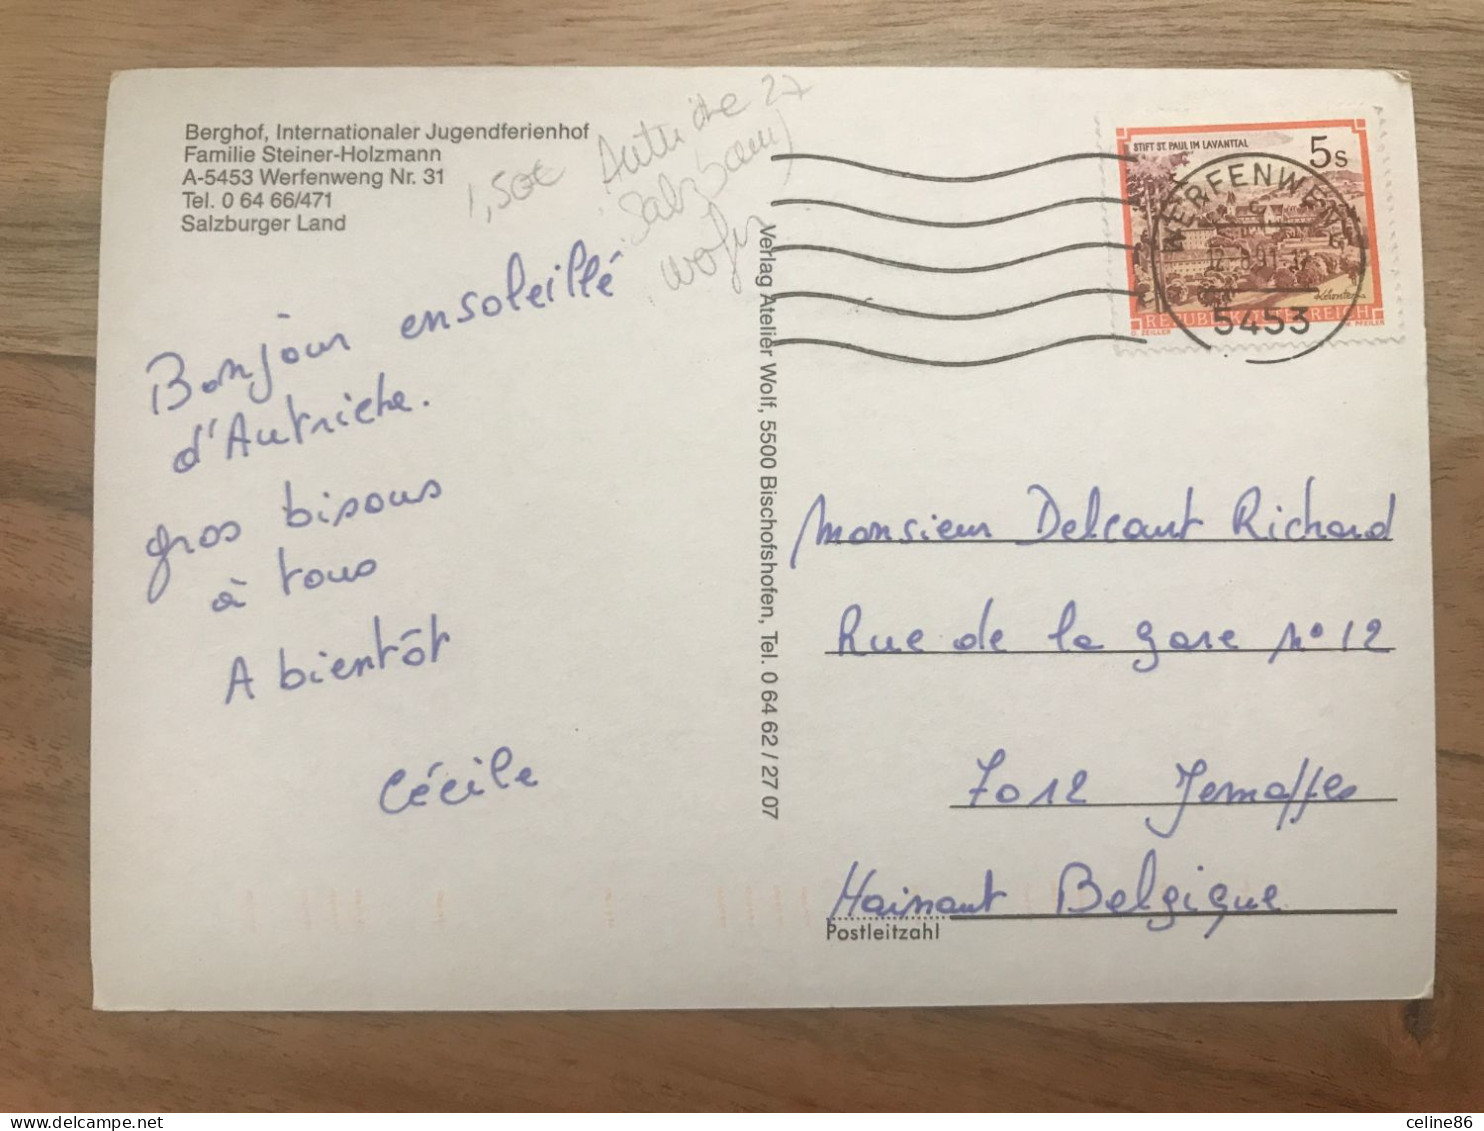 Berghof, Internationaler Jugendferienhof
Familie Steiner-Holzmann
A-5453 Werfenweng Nr. 31
Tel. 0 64 66/471
Salzburger Land
1,50€ Autriche 27
Bonjour ensoleillé
d'Autriche.
gros bisous
à tous
A bientôt
Cécile
Verlag Atelier Wolf, 5500 Bischofshofen, Tel. 0 64 62 / 27 07
STIFT ST. PAUL IM LAVANTTAL
5s
REPUBLIK ÖSTERREICH
ZEILLER
PFEILER
WERFENWENG
5453
Monsieur Delcourt Richard
Rue de la gare n° 12
7012 Jemappes
Hainaut Belgique
Postleitzahl
celine86